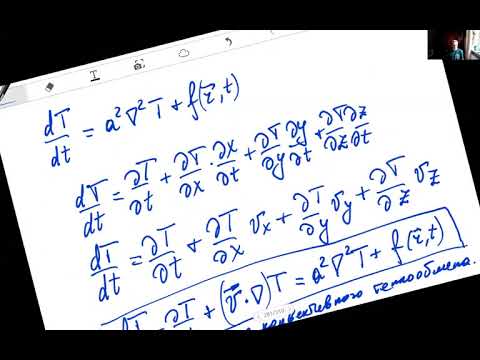 dT/dt = a²∇²T + f(r⃗, t)
dT/dt = ∂T/∂t + ∂T/∂x · ∂x/∂t + ∂T/∂y ∂y/∂t + ∂T/∂z ∂z/∂t
dT/dt = ∂T/∂t + ∂T/∂x v_x + ∂T/∂y v_y + ∂T/∂z v_z
dT/dt = ∂T/∂t + (v⃗·∇)T = a²∇²T + f(r⃗, t)
конвективного теплообмена.